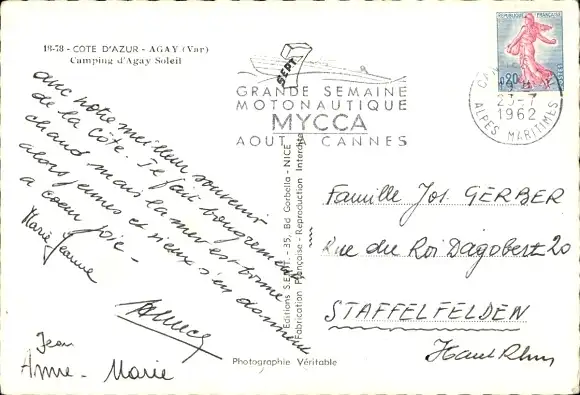 18-78 - COTE D'AZUR - AGAY (Var)
Camping d'Agay Soleil
SEPT
GRANDE SEMAINE
MOTONAUTIQUE
MYCCA
AOUT CANNES
REPUBLIQUE FRANÇAISE
0,20
23-7
1962
ALPES MARITIMES
avec notre meilleur souvenir
de la côte. Il fait bougrement
chaud mais la mer est bonne
alors jeunes et vieux s'en donnent
a coeur joie -
Marie Jeanne
Jean
Anne-Marie
Editions S.E.P.T. - 35, Bd Gorbella - NICE
Fabrication Française - Reproduction Interdite
Famille Jos. GERBER
Rue du Roi Dagobert 20
STAFFELFELDEN
Haut Rhin
Photographie Véritable